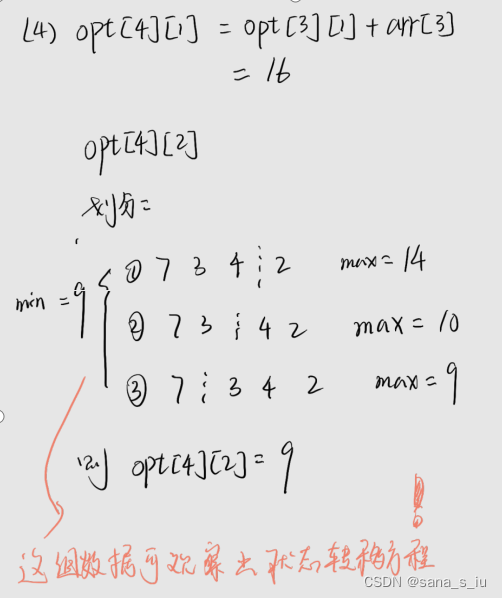 (4) opt[4][1] = opt[3][1] + arr[3]
= 16
opt[4][2]
划分=
① 7 3 4 ¦ 2 max=14
min = 9
② 7 3 ¦ 4 2 max = 10
③ 7 ¦ 3 4 2 max = 9
则 opt[4][2] = 9
这组数据可观察出状态转移方程!
CSDN @sana_s_iu